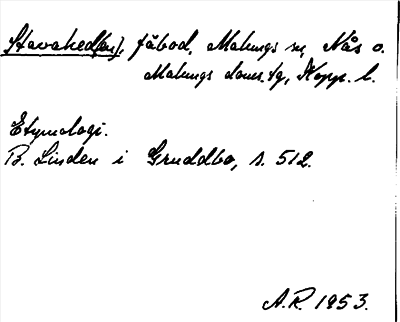 Stavahed(en), fäbod, Malungs sn, Nås o.
Malungs doms.tg, Kopp. l.
Etymologi.
B. Linden i Gruddbo, s. 512.
A.R. 1953.